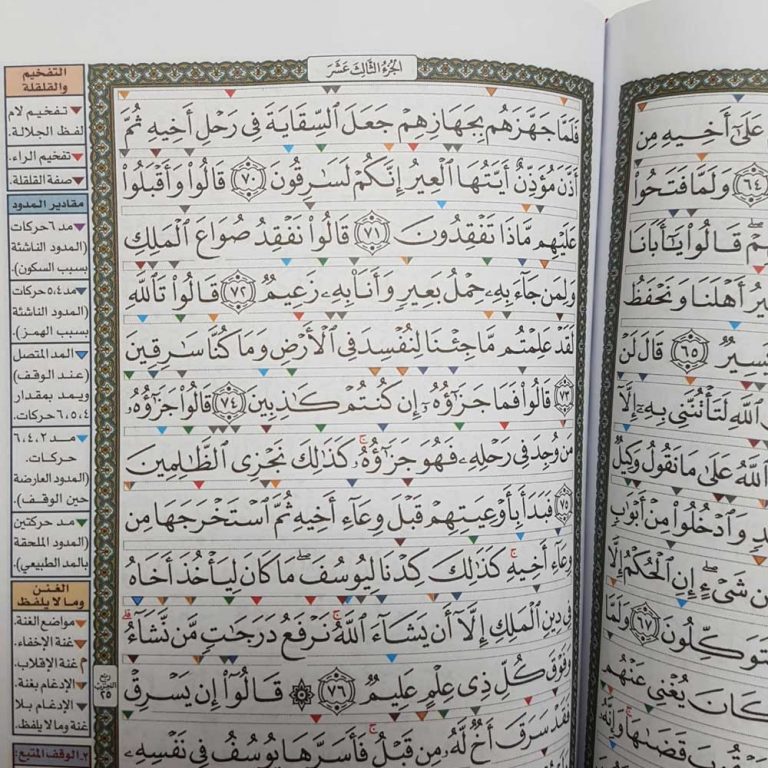 عَلَىٰٓ أَخِيهِ مِن
٦٤ وَلَمَّا فَتَحُواْ
قَالُواْ يَٰٓأَبَانَا
أَهْلَنَا وَنَحْفَظُ
٦٥ قَالَ لَنْ
ٱللَّهِ لَتَأْتُنَّنِى بِهِۦٓ إِلَّآ
ٱللَّهُ عَلَىٰ مَا نَقُولُ وَكِيلٌ
وَٱدْخُلُواْ مِنْ أَبْوَٰبٍ
مِن شَىْءٍ ۖ إِنِ ٱلْحُكْمُ إِلَّا
٦٧ وَلَمَّا
كَانَ يُغْنِى عَنْهُم
قَضَىٰهَا ۚ وَإِنَّهُۥ
الجُزءُ الثَّالِثَ عَشَرَ
فَلَمَّا جَهَّزَهُم بِجَهَازِهِمْ جَعَلَ ٱلسِّقَايَةَ فِى رَحْلِ أَخِيهِ ثُمَّ
أَذَّنَ مُؤَذِّنٌ أَيَّتُهَا ٱلْعِيرُ إِنَّكُمْ لَسَٰرِقُونَ ٧٠ قَالُواْ وَأَقْبَلُواْ
عَلَيْهِم مَّاذَا تَفْقِدُونَ ٧١ قَالُواْ نَفْقِدُ صُوَاعَ ٱلْمَلِكِ
وَلِمَن جَآءَ بِهِۦ حِمْلُ بَعِيرٍ وَأَنَا۠ بِهِۦ زَعِيمٌ ٧٢ قَالُواْ تَٱللَّهِ
لَقَدْ عَلِمْتُم مَّا جِئْنَا لِنُفْسِدَ فِى ٱلْأَرْضِ وَمَا كُنَّا سَٰرِقِينَ
٧٣ قَالُواْ فَمَا جَزَٰٓؤُهُۥٓ إِن كُنتُمْ كَٰذِبِينَ ٧٤ قَالُواْ جَزَٰٓؤُهُۥ
مَن وُجِدَ فِى رَحْلِهِۦ فَهُوَ جَزَٰٓؤُهُۥ ۚ كَذَٰلِكَ نَجْزِى ٱلظَّٰلِمِينَ
٧٥ فَبَدَأَ بِأَوْعِيَتِهِمْ قَبْلَ وِعَآءِ أَخِيهِ ثُمَّ ٱسْتَخْرَجَهَا مِن
وِعَآءِ أَخِيهِ ۚ كَذَٰلِكَ كِدْنَا لِيُوسُفَ ۖ مَا كَانَ لِيَأْخُذَ أَخَاهُ
فِى دِينِ ٱلْمَلِكِ إِلَّآ أَن يَشَآءَ ٱللَّهُ ۚ نَرْفَعُ دَرَجَٰتٍ مَّن نَّشَآءُ ۗ
وَفَوْقَ كُلِّ ذِى عِلْمٍ عَلِيمٌ ٧٦ ۞ قَالُوٓاْ إِن يَسْرِقْ
فَقَدْ سَرَقَ أَخٌ لَّهُۥ مِن قَبْلُ ۚ فَأَسَرَّهَا يُوسُفُ فِى نَفْسِهِۦ
التفخيم
والقلقلة
تفخيم لام
لفظ الجلالة.
تفخيم الراء.
صفة القلقلة.
مقادير المدود
مد ٦ حركات
(المدود الناشئة
بسبب السكون).
مد ٤، ٥ حركات
(المدود الناشئة
بسبب الهمز).
المد المتصل
(عند الوقف)
ويمد بمقدار
٤، ٥، ٦ حركات.
مد ٢، ٤، ٦
حركات.
(المدود العارضة
حين الوقف).
مد حركتين
(المدود الملحقة
بالمد الطبيعي).
الغنن
وما لا يلفظ
مواضع الغنة.
غنة الإخفاء.
م غنة الإقلاب.
الإدغام بغنة.
الإدغام بلا
غنة وما لا يلفظ.
٢ـ الوقف المتبع:
ربع
الحزب
٢٥